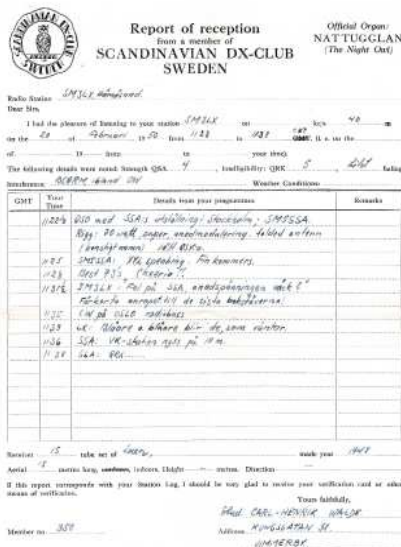 SCANDINAVIAN DX-CLUB
SWEDEN
Report of reception
from a member of
SCANDINAVIAN DX-CLUB
SWEDEN
Official Organ:
NATTUGGLAN
(The Night Owl)
Radio Station SM3LX
Dear Sirs,
I had the pleasure of listening to your station SM3LX on kc/s 40 m
on the 20 of Februari 1950 from 1122 to 1138 GMT, (i. e. on the
of 19 from to your time).
The following details were noted: Strength QSA 4, Intelligibility: QRK 5, fading
Interference Weather Conditions
GMT
Your Time
Details from your programmes
Remarks
QSO med SSA:s utställning i Stockholm; SM5SSA.
Rigg: 70 watt, super, anodmodulering, folded antenn
1125 SM5SSA: speaking.
Best 73's, Cheerio!
SM3LX: Fel på SSA,
Förkorta anropet till de sista bokstäverna!
1135 på OSLO radiobuss
1133 LX: Blåare o blåare blir de, som väntar.
1136 SSA: VK-station nyss på 10 m.
1138 SSA:
Receiver 15 tube set of made year 1948
Aerial 15 metres long, outdoors, indoors. Height — metres. Direction —
If this report corresponds with your Station Log, I should be very glad to receive your verification card or other
means of verification.
Yours faithfully,
CARL-HENRIK
Member no 350
Address KUNGSGATAN
VIMMERBY